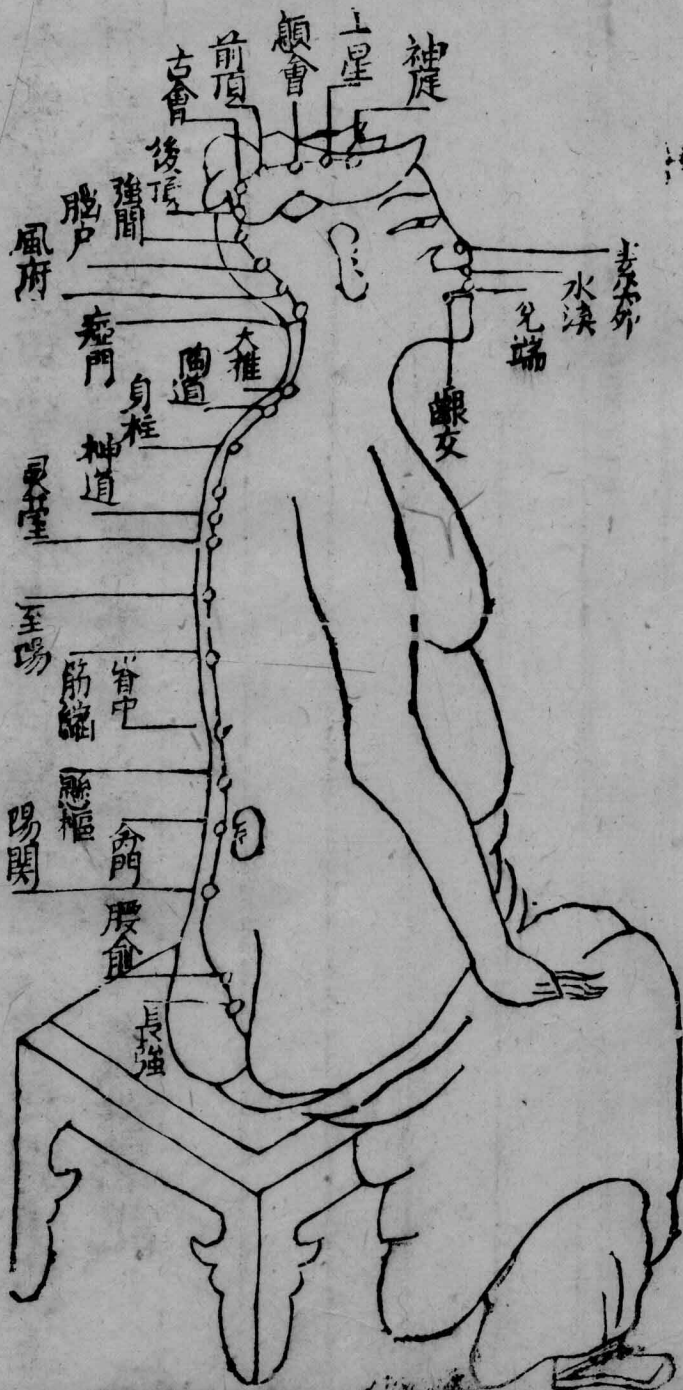 神庭
上星
顖會
前頂
古會
後頂
強間
腦户
風府
瘂門
大椎
陶道
身柱
神道
灵臺
至陽
筋縮
脊中
懸樞
命門
陽関
腰俞
長強
素窌
水溝
兌端
齦交